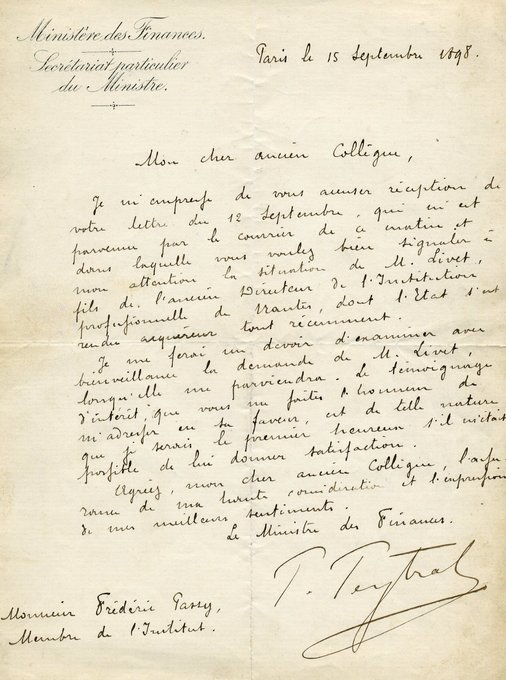 Ministère des Finances.
Secrétariat particulier
du Ministre.
Paris le 15 Septembre 1898.
Mon cher ancien Collègue,
Je m'empresse de vous accuser réception de
votre lettre du 12 Septembre, qui m'est
parvenue par le courrier de ce matin et
dans laquelle vous voulez bien signaler à
mon attention la situation de M. Livet,
fils de l'ancien Directeur de l'Institution
professionnelle de Nantes, dont l'Etat s'est
rendu acquéreur tout récemment.
Je me ferai un devoir d'examiner avec
bienveillance la demande de M. Livet,
lorsqu'elle me parviendra. Le témoignage
d'intérêt, que vous me faites l'honneur de
m'adresser en sa faveur, est de telle nature
que je serais le premier heureux s'il m'était
possible de lui donner satisfaction.
Agréez, mon cher ancien Collègue, l'assu
rance de ma haute considération et l'expression
de mes meilleurs sentiments.
Le Ministre des Finances.
P. Peytral
Monsieur Frédéric Passy,
Membre de l'Institut.